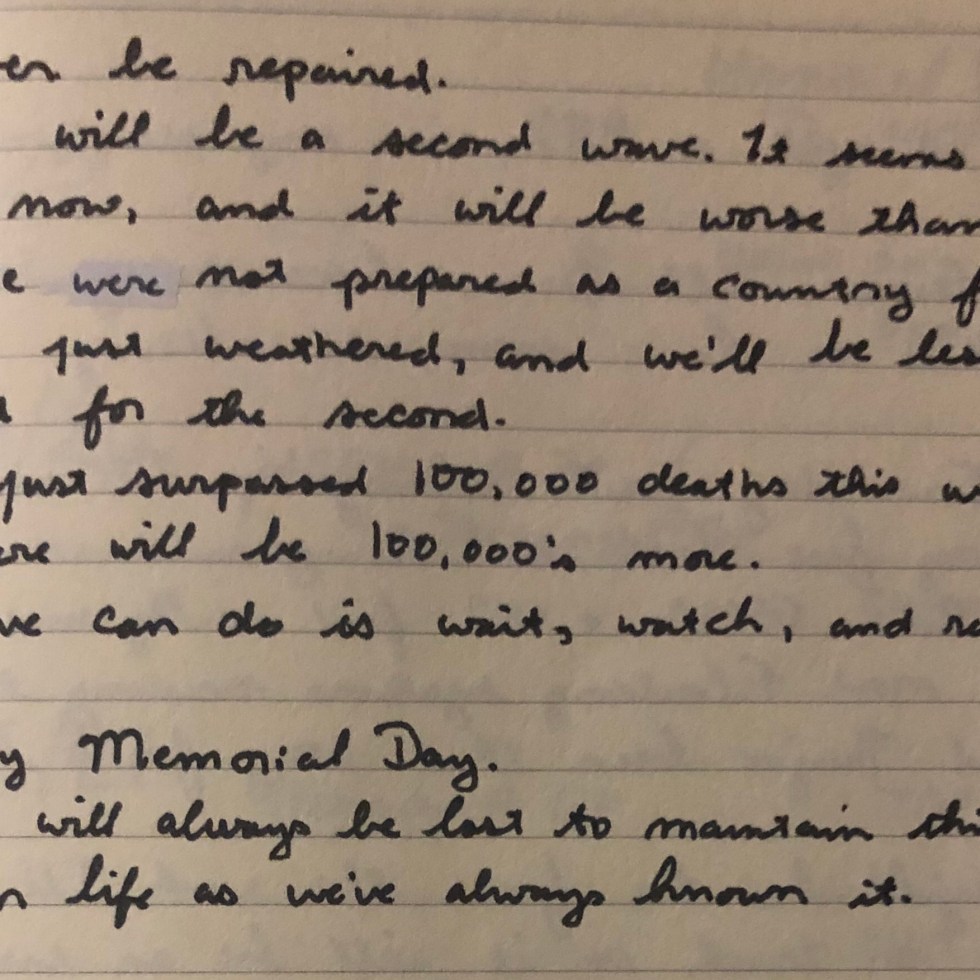 er be repaired.
will be a second wave. It seems
now, and it will be worse than
e were not prepared as a country f
just weathered, and we'll be les
d for the second.
just surpassed 100,000 deaths this w
ere will be 100,000's more.
we can do is wait, watch, and ra
y Memorial Day.
will always be lost to maintain thi
n life as we've always known it.